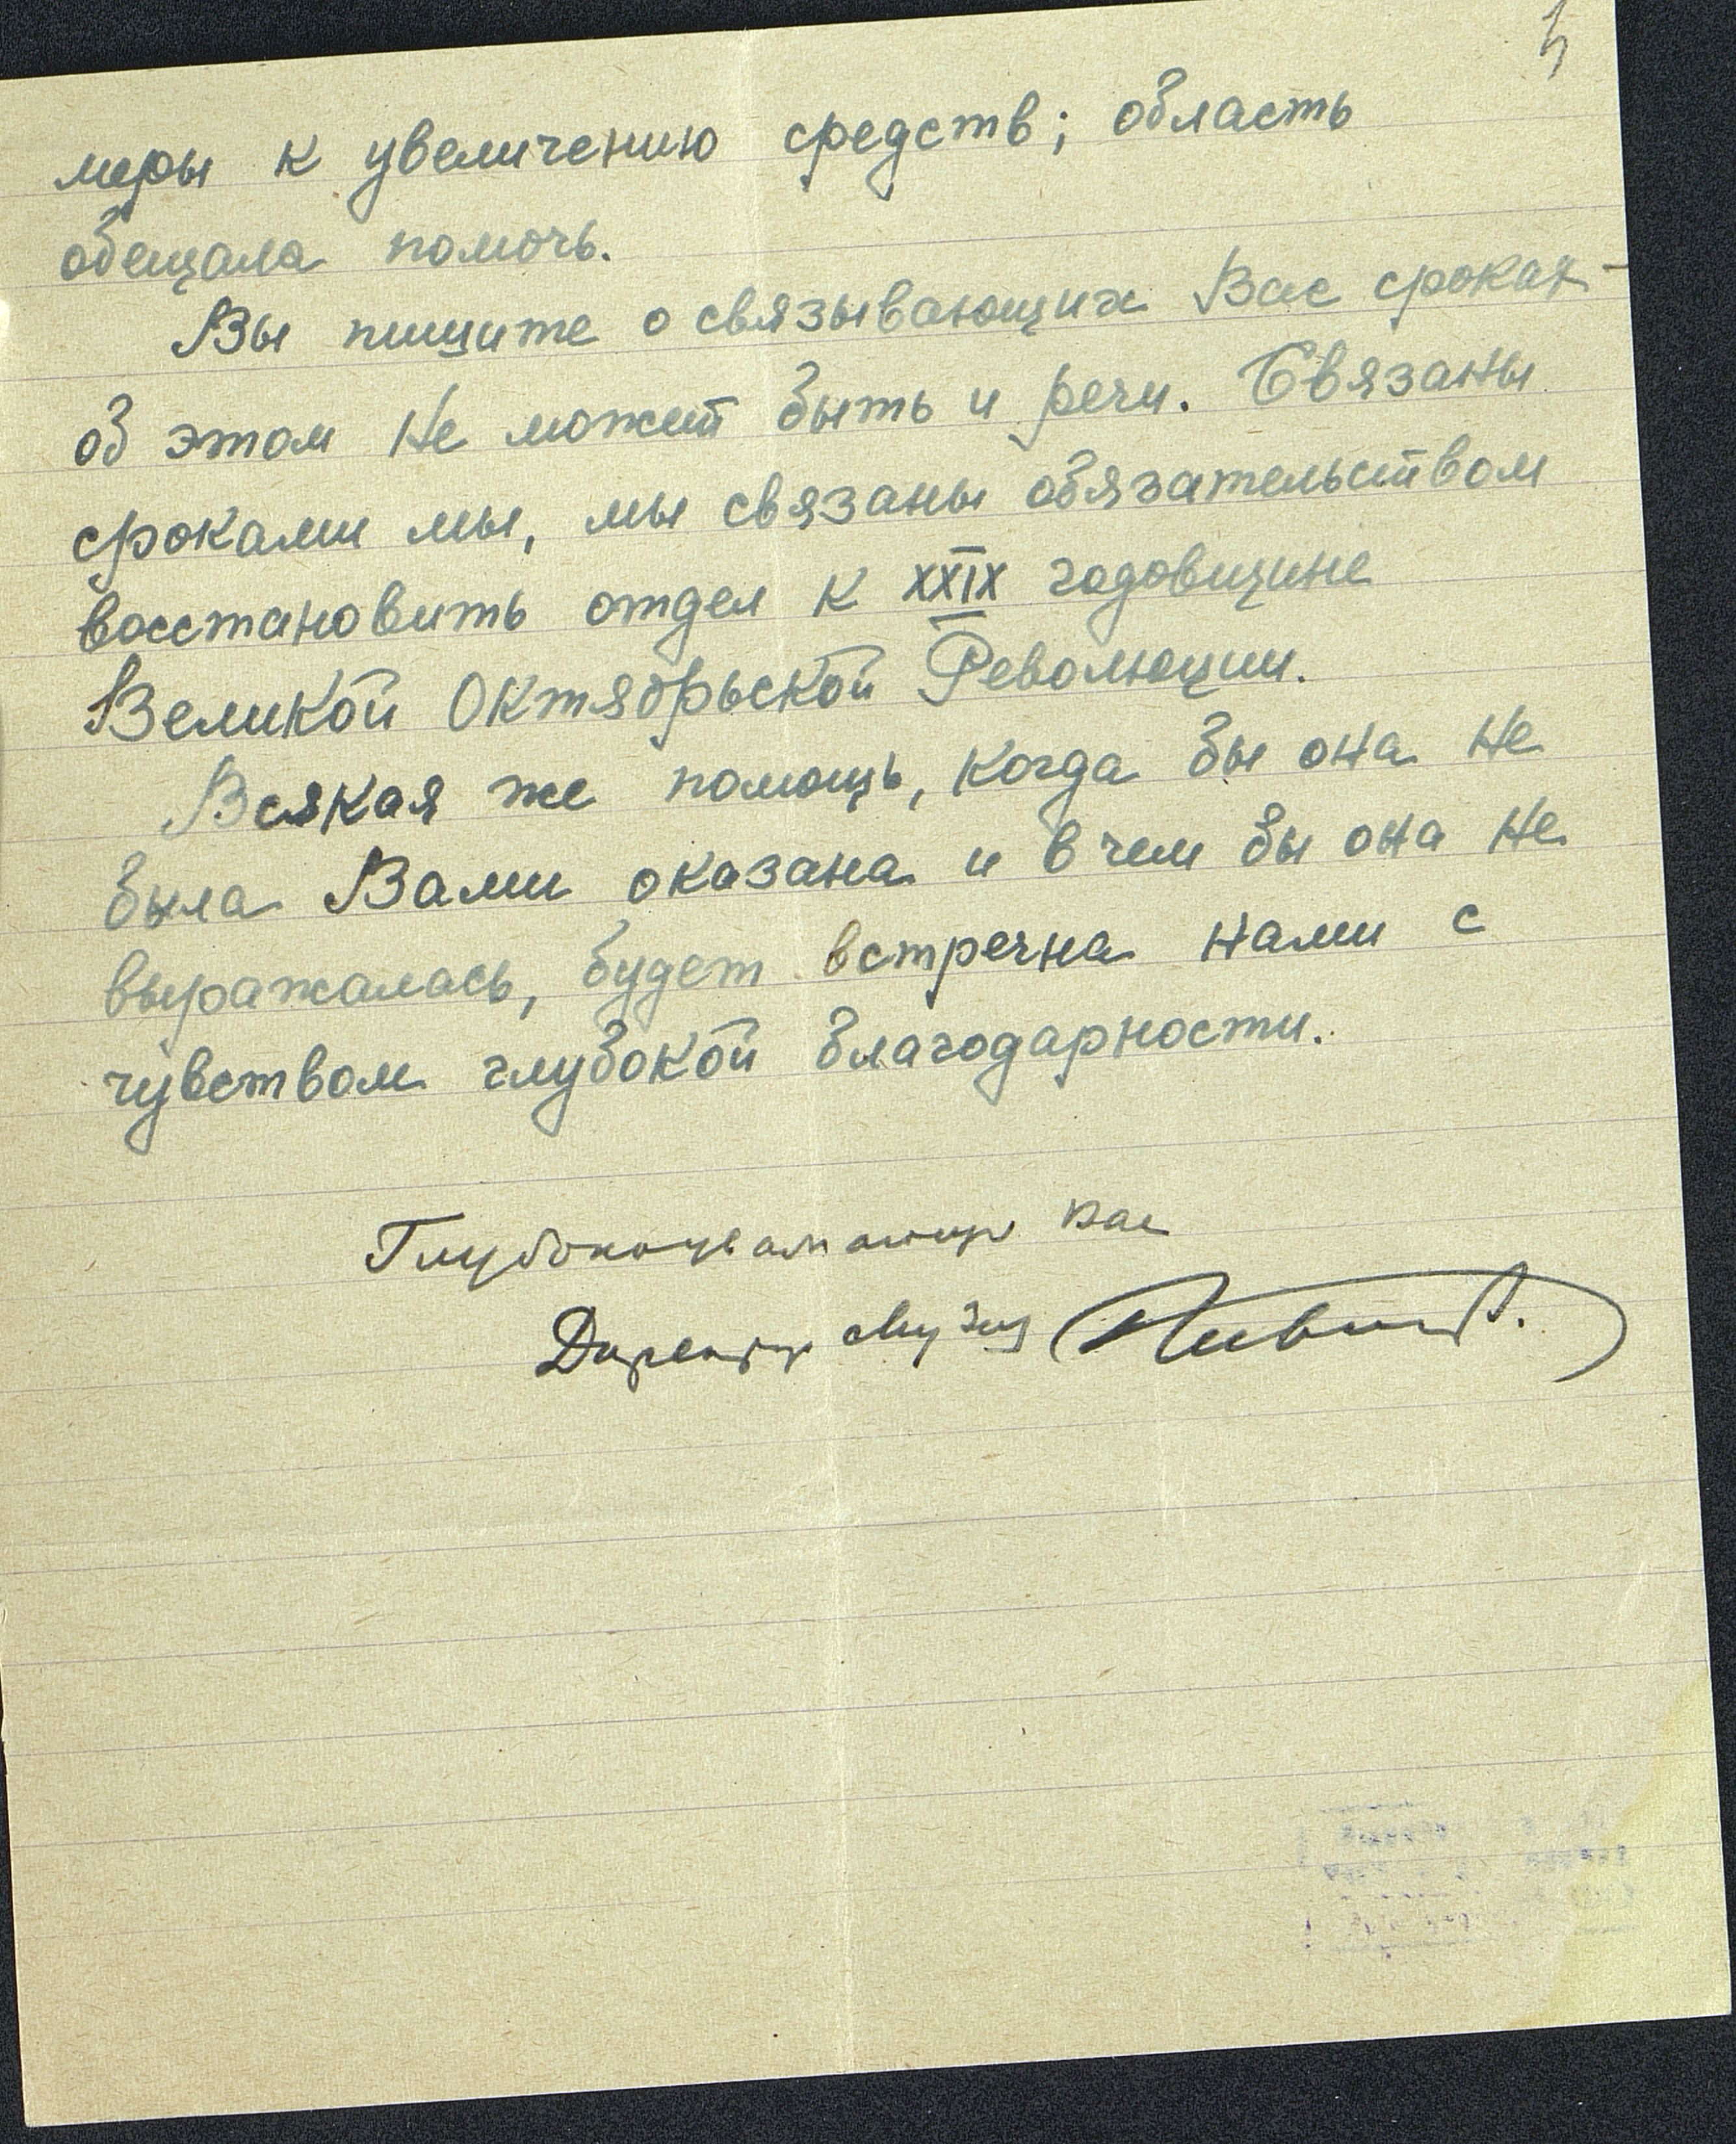 5
меры к увеличению средств; область
обещала помочь.
Вы пишите о связывающих Вас сроках -
об этом не может быть и речи. Связаны
сроками мы, мы связаны обязательством
восстановить отдел к XXIX годовщине
Великой Октябрьской Революции.
Всякая же помощь, когда бы она не
была Вами оказана и в чем бы она не
выражалась, будет встречна нами с
чувством глубокой благодарности.
Глубокоуважающий Вас
Директор Музея